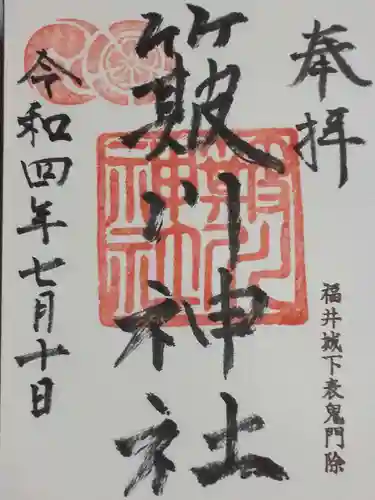 奉拝
福井城下表鬼門除
簸川神社
簸川
神社
令和四年七月十日